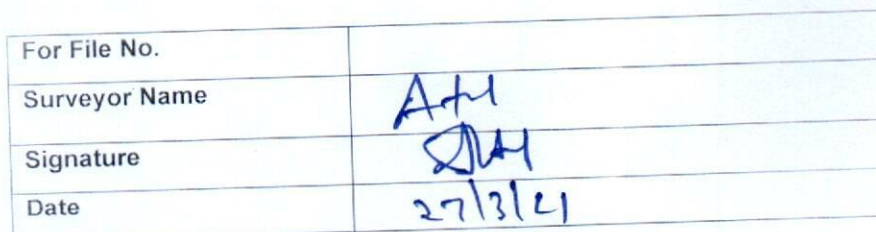 For File No.
Surveyor Name Atul
Signature
Date 27/3/21